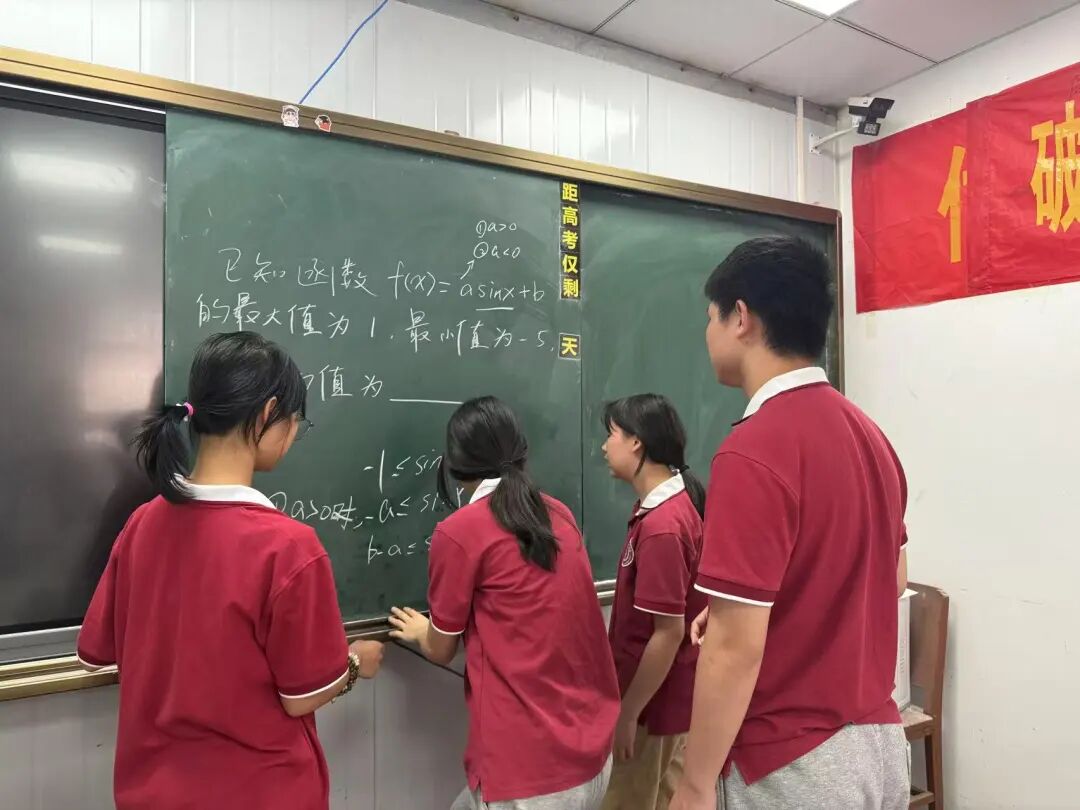 ①a>0
②a<0
已知函数 f(x)=asinx+b
的最大值为1,最小值为-5,
值为______
-1≤sin
①a>0时,-a≤sin
b-a≤s
距高考仅剩
天
破